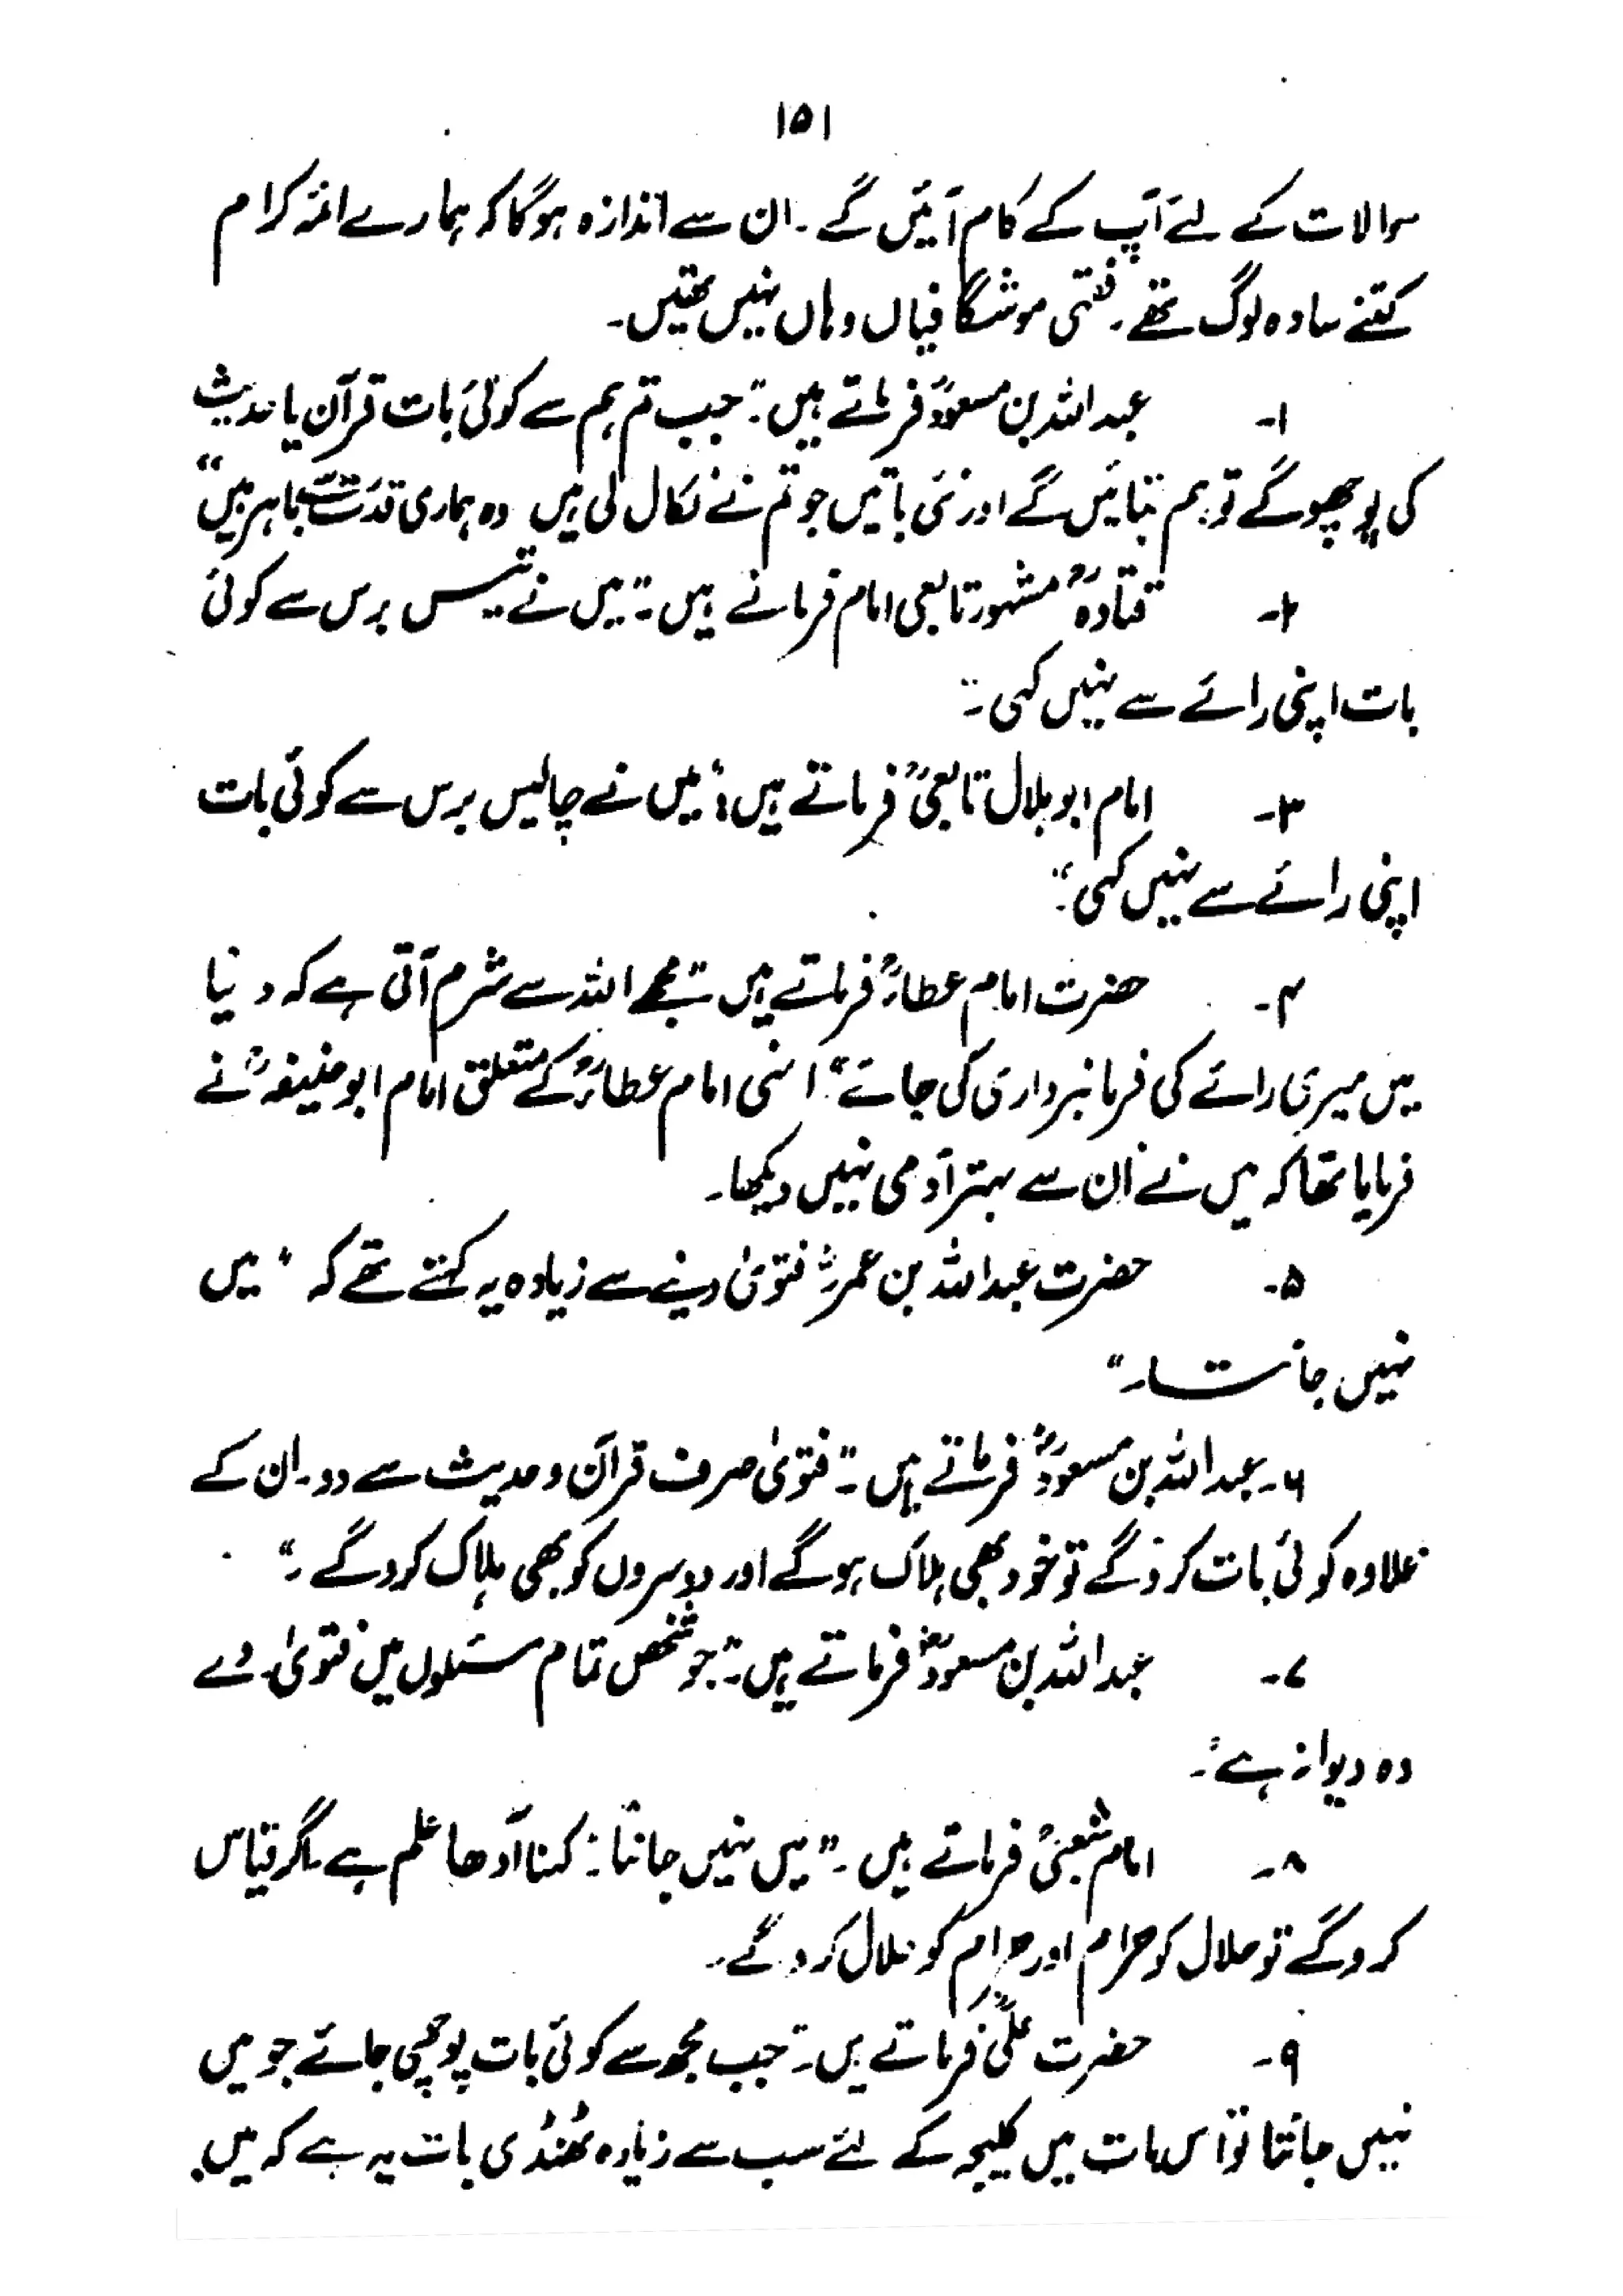 ۱۵۱
سوالات کے لئے آپ کے کام آئیں گے۔ ان سے اندازہ ہوگا کہ ہمارے ائمہ کرام
کتنے سادہ لوگ تھے۔ فقہی موشگافیاں وہاں نہیں تھیں۔
۱۔ عبداللہ بن مسعودؓ فرماتے ہیں۔ "جب تم ہم سے کوئی بات قرآن یا حدیث
کی پوچھو گے تو ہم بتائیں گے اور نئی باتیں جو تم نے نکال لی ہیں وہ ہماری قدرت سے باہر ہیں"
۲۔ قتادہؒ مشہور تابعی امام فرماتے ہیں۔ "میں نے تیس برس سے کوئی
بات اپنی رائے سے نہیں کہی۔"
۳۔ امام ابو ہلال تابعیؒ فرماتے ہیں: "میں نے چالیس برس سے کوئی بات
اپنی رائے سے نہیں کہی۔"
۴۔ حضرت امام عطاءؒ فرماتے ہیں "مجھے اللہ سے شرم آتی ہے کہ دنیا
میں میری رائے کی فرمانبرداری کی جائے" انہی امام عطاءؒ کے متعلق امام ابو حنیفہؒ نے
فرمایا تھا کہ میں نے ان سے بہتر آدمی نہیں دیکھا۔
۵۔ حضرت عبداللہ بن عمرؓ فتویٰ دینے سے زیادہ یہ کہتے تھے کہ "میں
نہیں جانتا۔"
۶۔ عبداللہ بن مسعودؓ فرماتے ہیں۔ "فتویٰ صرف قرآن و حدیث سے دو۔ ان کے
علاوہ کوئی بات کرو گے تو خود بھی ہلاک ہو گے اور دوسروں کو بھی ہلاک کرو گے۔"
۷۔ عبداللہ بن مسعودؓ فرماتے ہیں۔ "جو شخص تمام مسئلوں میں فتویٰ دے
وہ دیوانہ ہے"۔
۸۔ امام شعبیؒ فرماتے ہیں۔ "میں نہیں جانتا" کہنا آدھا علم ہے مگر قیاس
کرو گے تو حلال کو حرام اور حرام کو حلال کر دو گے۔
۹۔ حضرت علیؓ فرماتے ہیں۔ "جب مجھ سے کوئی بات پوچھی جائے جو میں
نہیں جانتا تو اس بات میں کلیجہ کے لئے سب سے زیادہ ٹھنڈی بات یہ ہے کہ میں